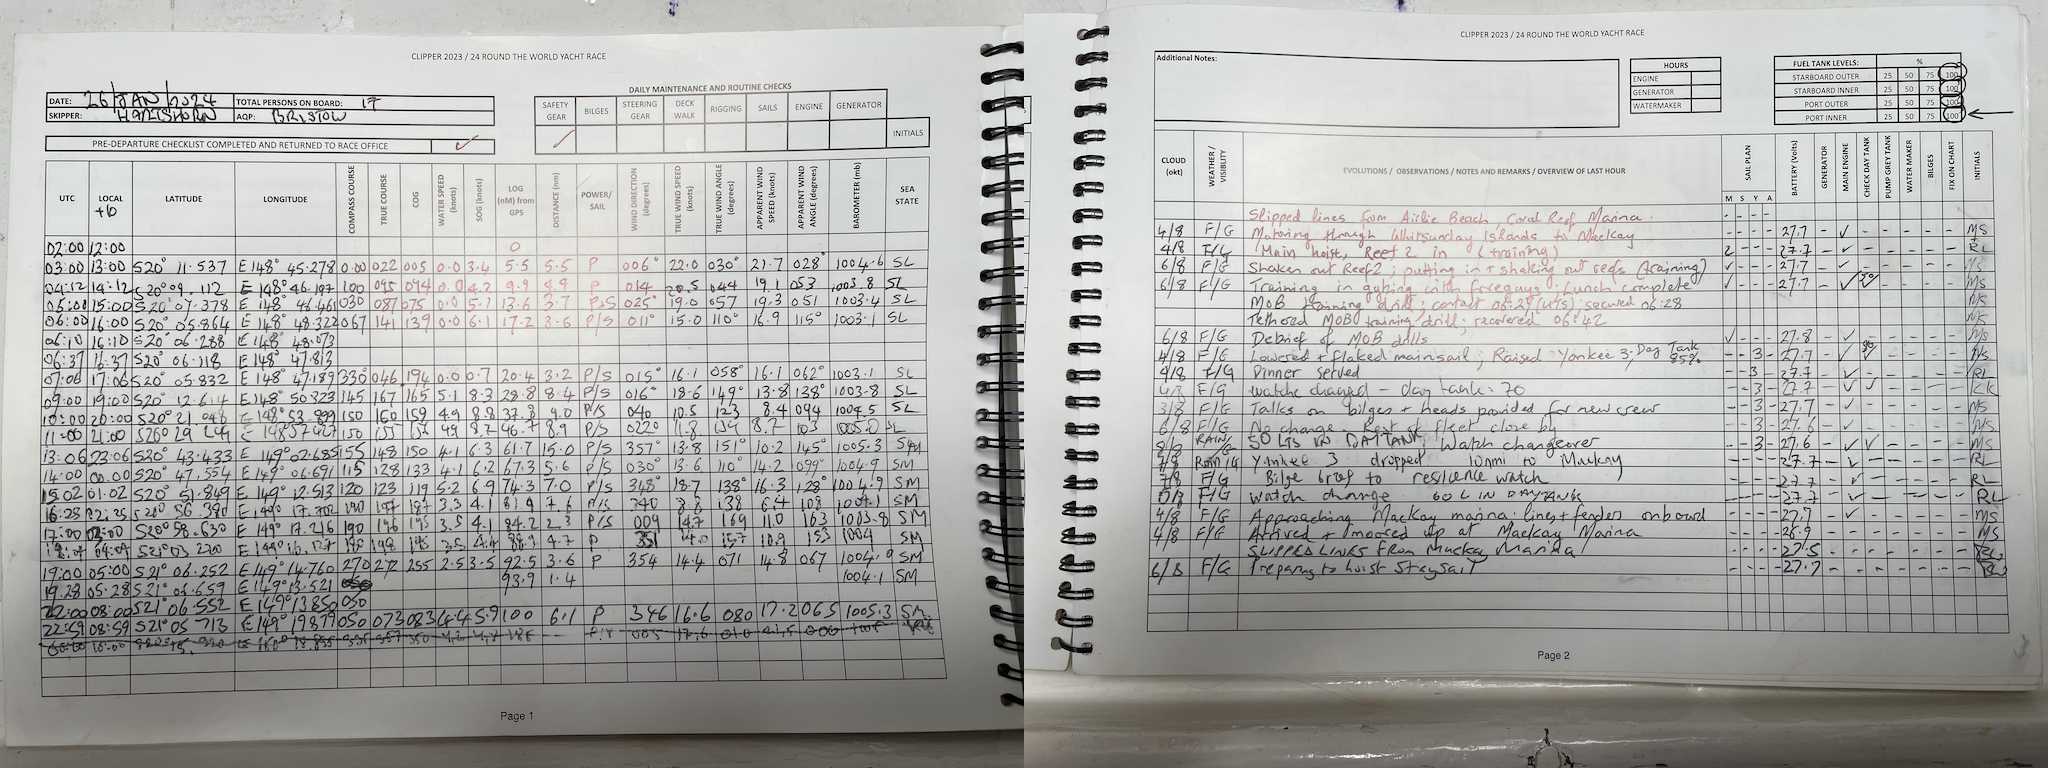 CLIPPER 2023 / 24 ROUND THE WORLD YACHT RACE
DATE: 26/JAN/2024 TOTAL PERSONS ON BOARD: 17
SKIPPER: HARTSHORN AQP: BRISTOW
PRE-DEPARTURE CHECKLIST COMPLETED AND RETURNED TO RACE OFFICE ✓
DAILY MAINTENANCE AND ROUTINE CHECKS
SAFETY GEAR BILGES STEERING GEAR DECK WALK RIGGING SAILS ENGINE GENERATOR
INITIALS
UTC LOCAL +10 LATITUDE LONGITUDE COMPASS COURSE TRUE COURSE COG WATER SPEED (knots) SOG (knots) LOG (nM) from GPS DISTANCE (nm) POWER/ SAIL WIND DIRECTION (degrees) TRUE WIND SPEED (knots) TRUE WIND ANGLE APPARENT WIND SPEED (knots) APPARENT WIND ANGLE (degrees) BAROMETER (mb) SEA STATE
02:00 12:00 0
03:00 13:00 S20° 11.537 E148° 45.278 0.00 022 005 0.0 3.4 5.5 5.5 P 006° 22.0 030° 21.7 028° 1004.6 SL
04:12 14:12 S20°09.112 E 148° 46.197 100 095 094 0.0 4.2 9.9 4.4 P 014 20.5 044 19.1 053 1003.8 SL
05:00 15:00 S20° 07.378 E 148° 46.461 030 087 075 0.0 5.1 13.6 3.7 P/S 025° 19.0 057 19.3 051 1003.4 SL
06:00 16:00 S20° 05.864 E 148° 48.322 067 141 139 0.0 6.1 17.2 3.6 P/S 011° 15.0 110° 16.9 115° 1003.1 SL
06:10 16:10 S20° 06.288 E 148° 48.073
06:37 16:37 S20° 06.118 E 148° 47.813
07:06 17:06 S20° 05.832 E 148° 47.189 330° 046 194 0.0 0.7 20.4 3.2 P/S 015° 16.1 058° 16.1 062° 1003.1 SL
09:00 19:00 S20° 12.614 E148° 50.323 145 167 165 5.1 8.3 28.8 8.4 P/S 016° 18.6 149° 13.8 138° 1003.8 SL
10:00 20:00 S20° 21.048 E 148° 53.899 150 160 159 4.9 8.8 37.8 9.0 P/S 040 10.5 123 8.4 094 1004.5 SL
11:00 21:00 S20° 29 E 148° 150 8.2 46.7 8.9 P/S 022° 103 SL
13:06 23:06 S20° 43.433 E 149° 02.685 155 148 150 4.1 6.3 61.7 15.0 P/S 357° 13.8 151° 10.2 145° 1005.3 SM
14:00 00:00 S20° 47.554 E149° 06.691 115 128 133 4.1 6.2 67.3 5.6 P/S 030° 13.6 110° 14.2 099° 1004.9 SM
15:02 01:02 S20° 51.849 E 149° 12.513 120 123 119 5.2 6.9 74.3 7.0 P/S 348° 18.7 138° 16.3 128° 1004.9 SM
16:25 02:25 S20° 56.390 E 149° 17.702 190 197 187 3.3 4.1 81.9 7.6 P/S 340 8.8 138 6.4 108 1004.1 SM
17:00 03:00 S20° 58.630 E 149° 17.216 190 196 195 3.5 4.1 84.2 2.3 P/S 009 14.7 169 11.0 163 1003.8 SM
04:04 S21° 03 E 149° 4.7 P 351 153 1004 SM
19:00 05:00 S21° 06.252 E 149° 14.760 270 272 255 2.5 3.5 92.5 3.6 P 354 14.4 071 14.8 067 1004.9 SM
19:28 05:28 S21° 06.659 E 149° 13.521 93.9 1.4 1004.1 SM
22:00 08:00 S21° 06.552 E 149° 13850 050
22:59 08:59 S21° 05 713 E 149° 19877 050 073 083 4.4 5.9 100 6.1 P 346 16.6 080 17.2 065 1005.3 SM
Page 1
CLIPPER 2023 / 24 ROUND THE WORLD YACHT RACE
Additional Notes:
HOURS
ENGINE
GENERATOR
WATERMAKER
FUEL TANK LEVELS: %
STARBOARD OUTER 25 50 75 100
STARBOARD INNER 25 50 75 100
PORT OUTER 25 50 75 100
PORT INNER 25 50 75 100 ←
CLOUD (okt) WEATHER / VISIBLITY EVOLUTIONS / OBSERVATIONS / NOTES AND REMARKS / OVERVIEW OF LAST HOUR SAIL PLAN BATTERY (Volts) GENERATOR MAIN ENGINE CHECK DAY TANK PUMP GREY TANK WATER MAKER BILGES FIX ON CHART INITIALS
M S Y A
Slipped lines from Airlie Beach Coral Reef Marina.
4/8 F/G Motoring through Whitsunday Islands to Mackay 27.7 ✓ MS
4/8 F/G Main hoist, Reef 2 in (training) 2 27.7 ✓ RL
6/8 F/G Shaken out Reef2; putting in + shaking out reefs (training) ✓ 27.7 ✓ MS
6/8 F/G Training in gybing with foreguys; Lunch complete ✓ 27.7 ✓ MS
MOB training drill; contact 06:24 (UTC); secured 06:28 MS
Tethered MOB training drill; recovered 06:42 MS
6/8 F/G Debrief of MOB drills ✓ 27.8 ✓ MS
4/8 F/G Lowered + flaked mainsail; Raised Yankee 3; Day Tank 85% 3 27.7 ✓ MS
4/8 F/G Dinner served 3 27.7 ✓ RL
F/G watche changed - day tank: 70 3 27.7 ✓ ✓ KK
3/8 F/G Talks on bilges + heads provided for new crew 3 27.7 ✓ MS
6/8 F/G No change. Rest of fleet close by 3 27.6 ✓ MS
8/8 RAIN/G 50 LTS IN DAY TANK. Watch changeover 3 27.6 ✓ ✓ MS
Rain Yankee 3 dropped 10nmi to Mackay 27.7 ✓ RL
7/8 F/G Bilge brief to resilence watch 27.7 ✓ RL
F/G Watch change 60 L IN DAY TANK 27.7 ✓ RL
4/8 F/G Approaching Mackay marina: lines + fenders onboard 27.7 ✓ MS
4/8 F/G Arrived + moored up at Mackay Marina 26.9 MS
SLIPPED LINES FROM Mackay Marina 27.5
6/8 F/G Preparing to hoist Staysail 27.7
Page 2